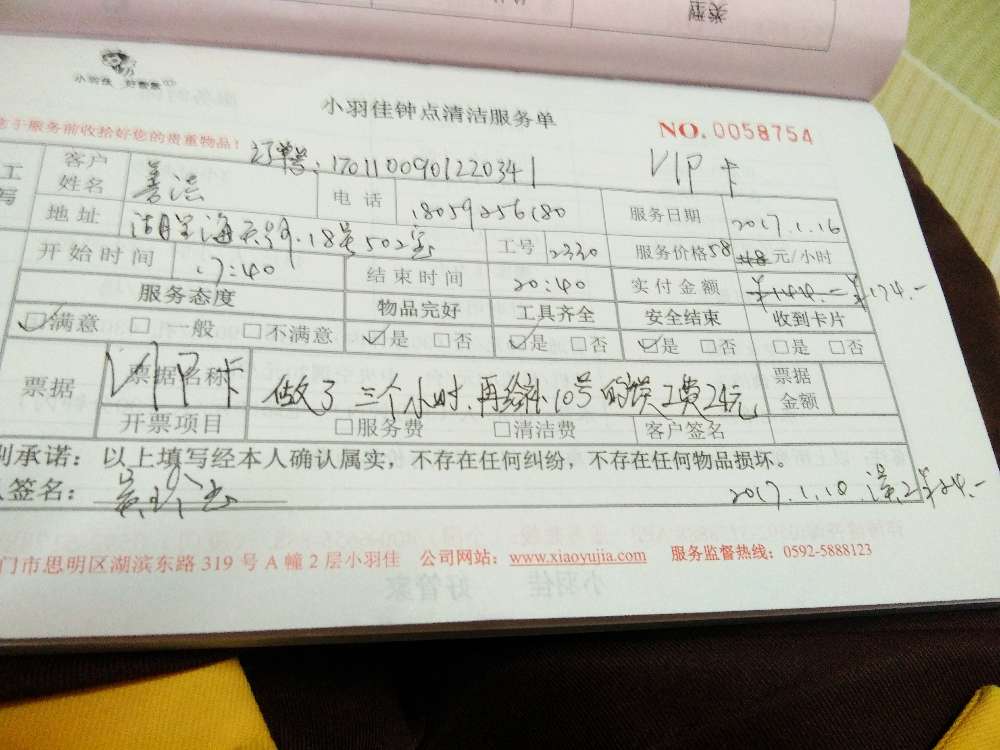 类型
小羽佳 好管家
小羽佳钟点清洁服务单
NO. 0058754
于服务前收拾好您的贵重物品!
订单号:1701100901220341 VIP卡
工 客户姓名 善法 电话 18059256180 服务日期 2017.1.16
写 地址 18号502室 工号 2330 服务价格58 元/小时
开始时间 17:40 结束时间 20:40 实付金额 ¥144.- ¥174.-
服务态度 物品完好 工具齐全 安全结束 收到卡片
☑满意 □一般 □不满意 ☑是 □否 ☑是 □否 ☑是 □否 □是 □否
票据 票据名称 VIP卡 做了三个小时,再给补10号的误工费24元 票据金额
开票项目 □服务费 □清洁费 客户签名
别承诺:以上填写经本人确认属实,不存在任何纠纷,不存在任何物品损坏。
签名: 2017.1.10.误工¥24.-
门市思明区湖滨东路 319 号 A 幢 2 层小羽佳 公司网站:www.xiaoyujia.com 服务监督热线:0592-5888123